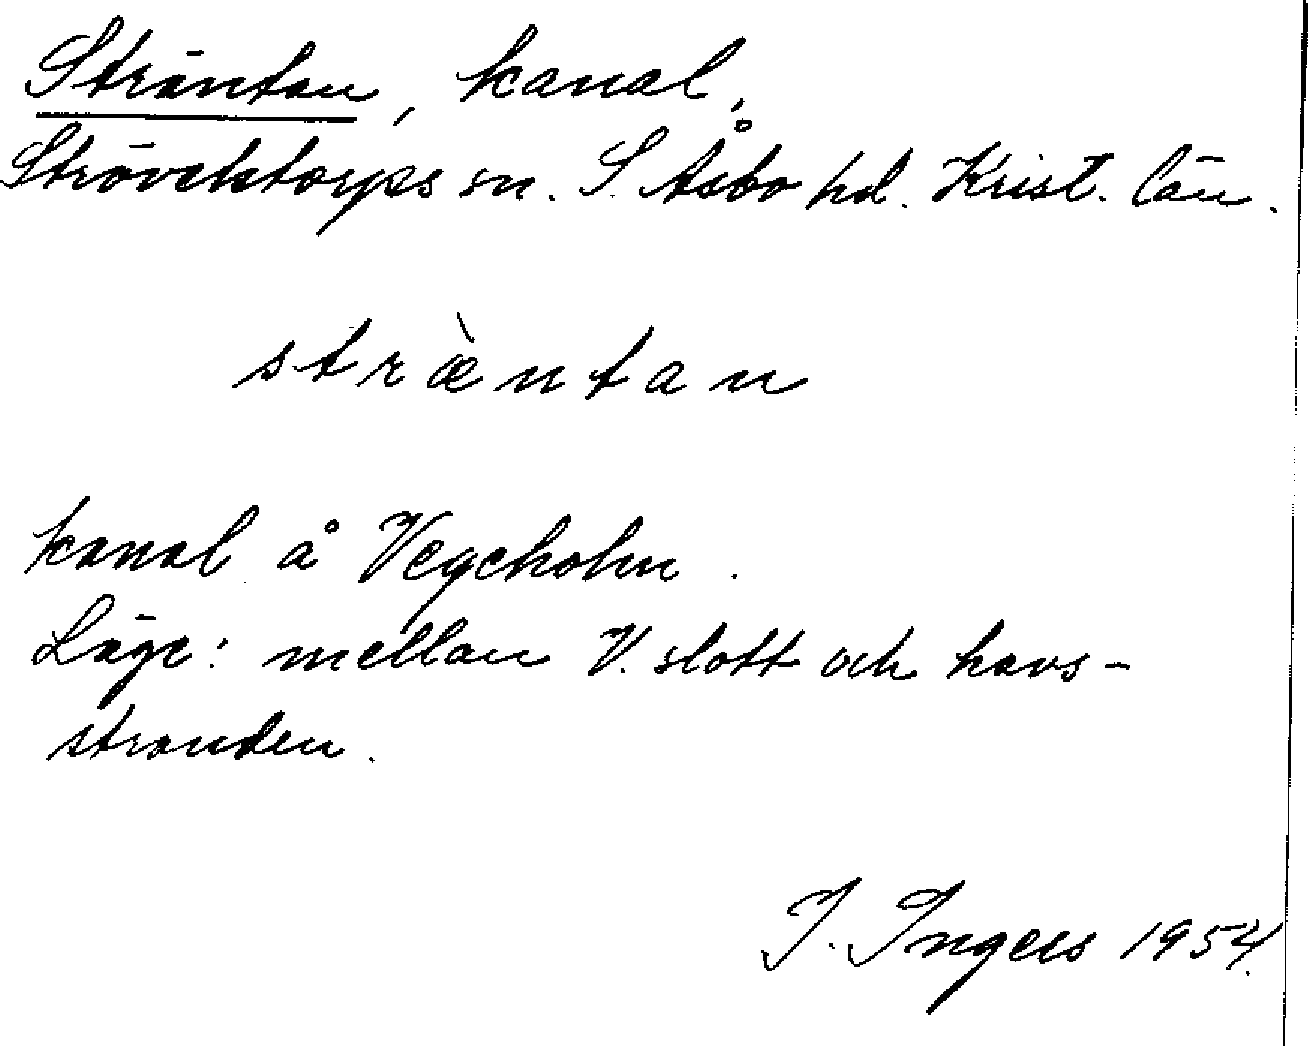 Sträntan, kanal,
Strövelstorps sn. S. Åsbo hd. Krist. län.
stræ̀ntan
kanal å Vegeholm.
Läge: mellan V. slott och havs-
stranden.
I. Ingers 1954.